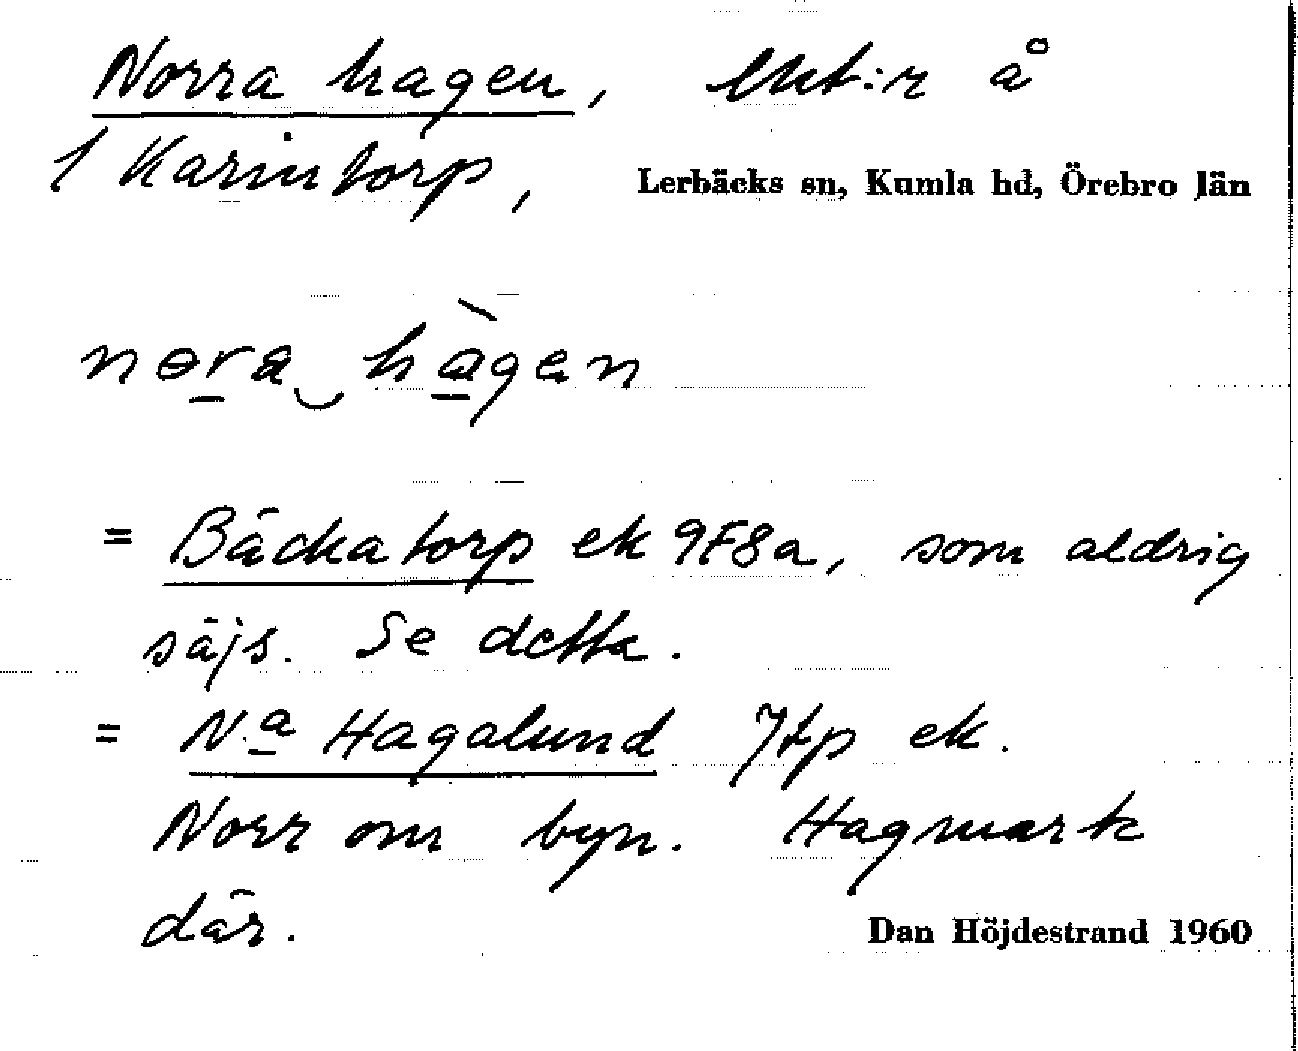 Norra hagen, lht:r å
1 Karintorp, Lerbäcks sn, Kumla hd, Örebro län
nɵra‿hàgen
= Bäckatorp ek 9F8a, som aldrig
säjs. Se detta.
= N:a Hagalund Jtp ek.
Norr om byn. Hagmark
där.
Dan Höjdestrand 1960